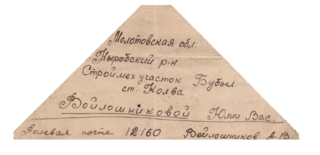 Молотовская обл.
Ныробский р-н
Строймех участок Бубыл
ст. Колва
Войлошниковой Юлии Вас.
Полевая почта 12160 Войлошников А.В.